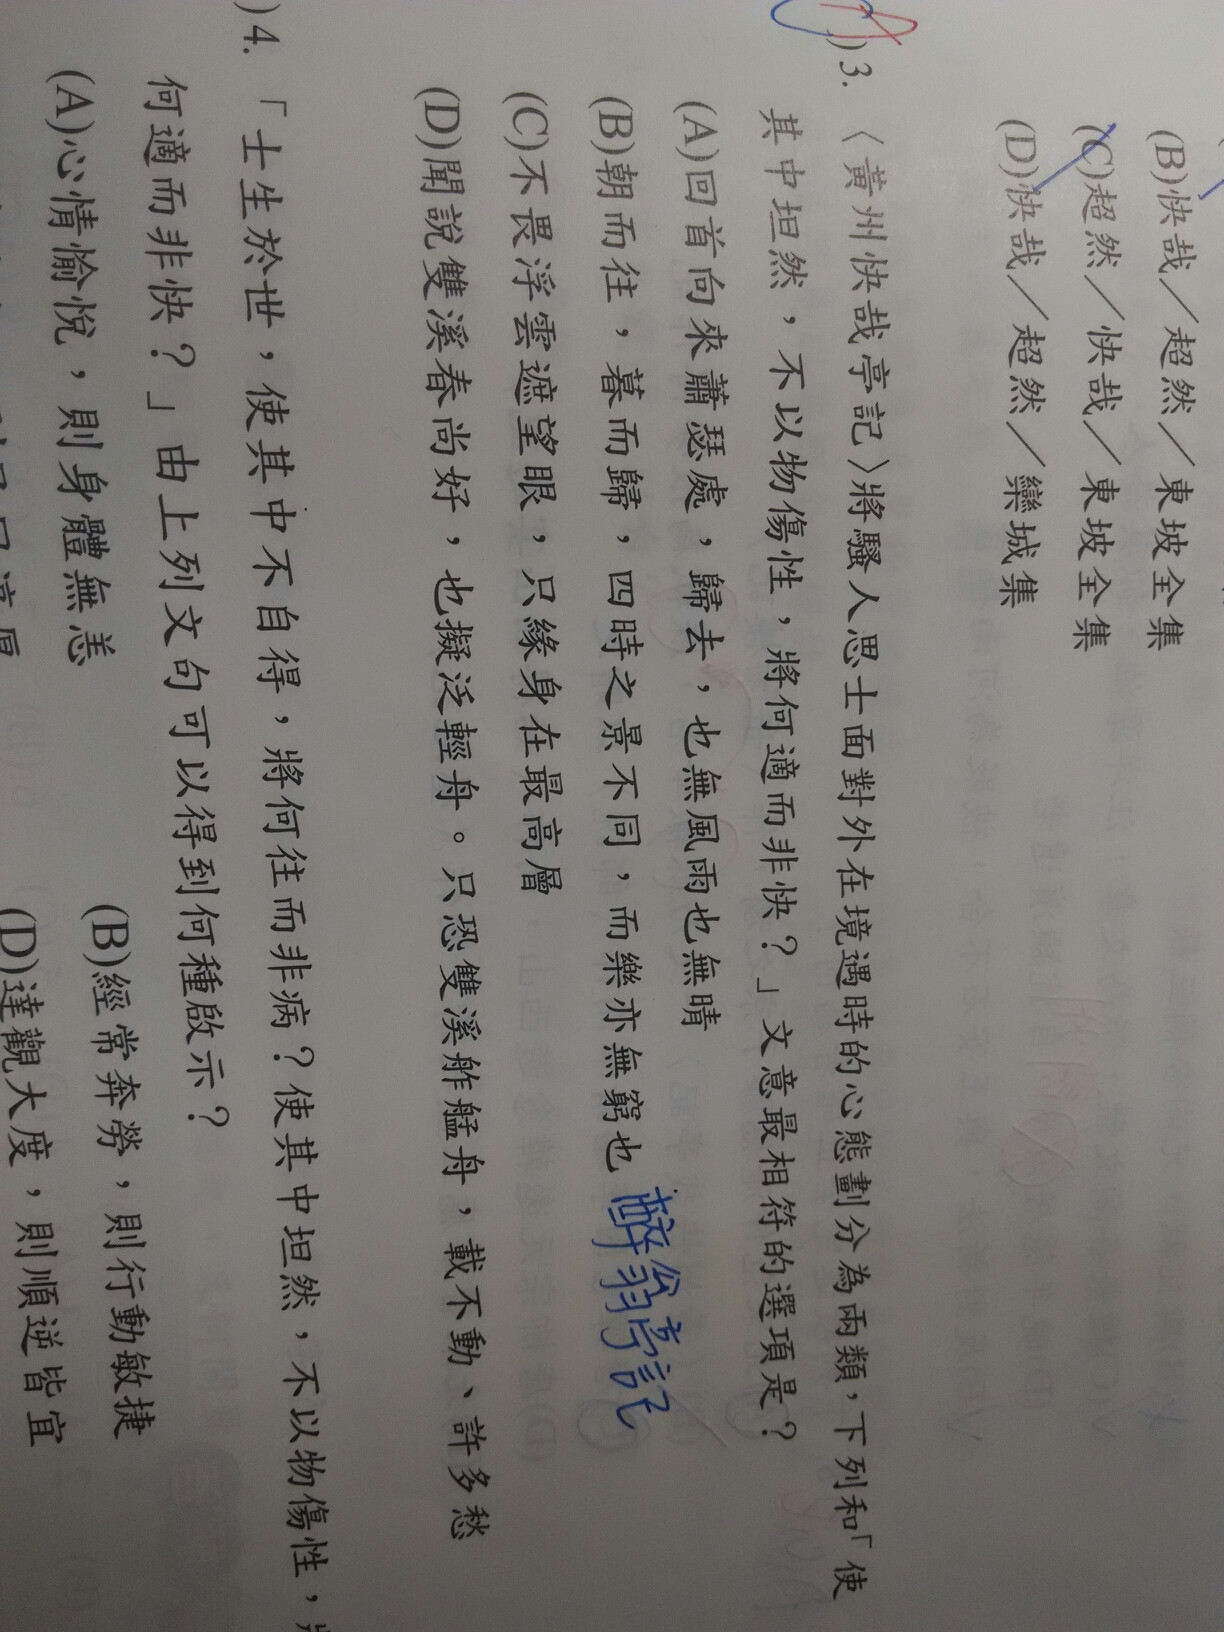 (B)快哉／超然／東坡全集
(C)超然／快哉／東坡全集
(D)快哉／超然／欒城集
)3.〈黃州快哉亭記〉將騷人思士面對外在境遇時的心態劃分為兩類，下列和「使
其中坦然，不以物傷性，將何適而非快？」文意最相符的選項是？
(A)回首向來蕭瑟處，歸去，也無風雨也無晴
(B)朝而往，暮而歸，四時之景不同，而樂亦無窮也 醉翁亭記
(C)不畏浮雲遮望眼，只緣身在最高層
(D)聞說雙溪春尚好，也擬泛輕舟。只恐雙溪舴艋舟，載不動、許多愁
)4.「士生於世，使其中不自得，將何往而非病？使其中坦然，不以物傷性，
何適而非快？」由上列文句可以得到何種啟示？
(A)心情愉悅，則身體無恙 (B)經常奔勞，則行動敏捷
(D)達觀大度，則順逆皆宜